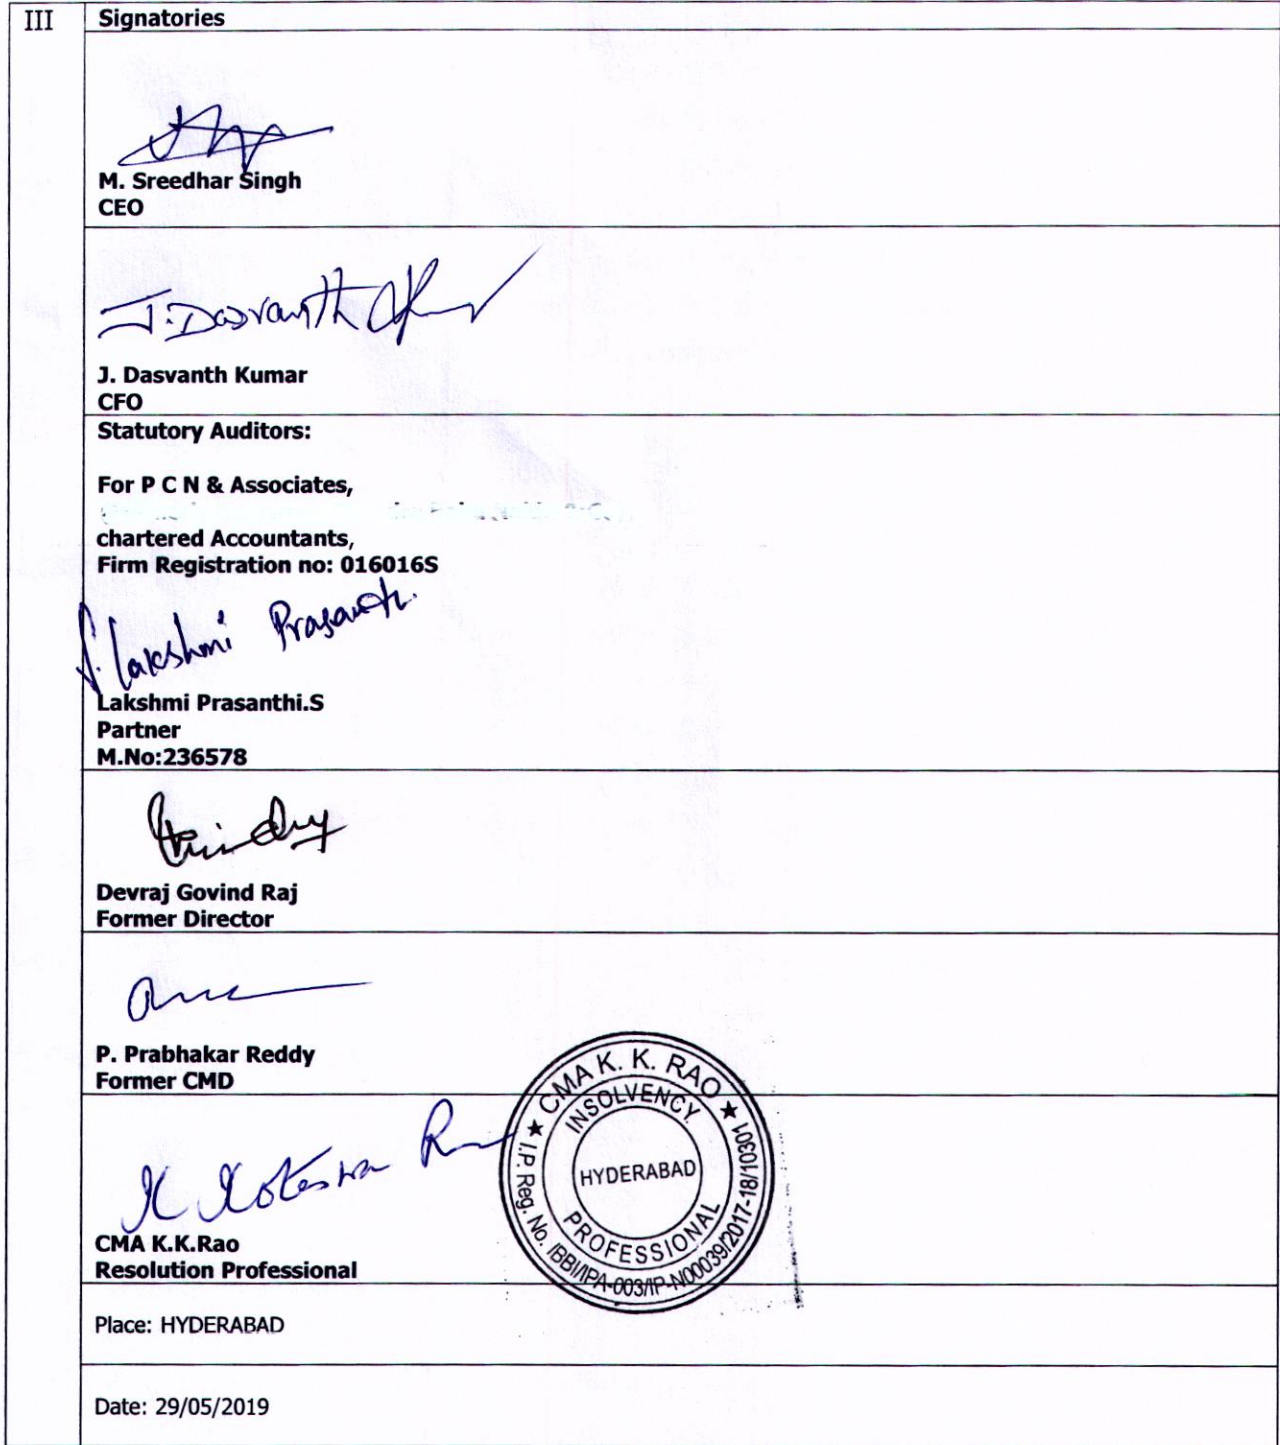 III
Signatories
M. Sreedhar Singh
CEO
J. Dasvanth Kumar
J. Dasvanth Kumar
CFO
Statutory Auditors:
For P C N & Associates,
chartered Accountants,
Firm Registration no: 016016S
S. Lakshmi Prasanthi.
Lakshmi Prasanthi.S
Partner
M.No:236578
Devraj Govind Raj
Former Director
P. Prabhakar Reddy
Former CMD
K Koteswara Rao
CMA K.K.Rao
Resolution Professional
★ CMA K. K. RAO ★
I.P. Reg. No. IBBI/IPA-003/IP-N00039/2017-18/10301
INSOLVENCY
PROFESSIONAL
HYDERABAD
Place: HYDERABAD
Date: 29/05/2019